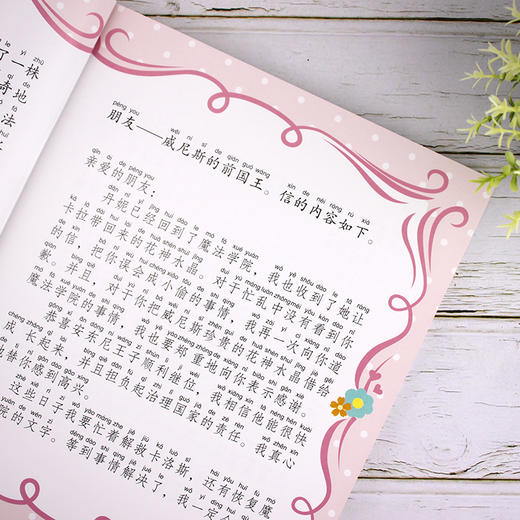 了一株
奇地
法
朋友——威尼斯的前国王。信的内容如下。
亲爱的朋友：
丹妮已经回到了魔法学院，我也收到了她让
卡拉带回来的花神水晶。对于忙乱中没有看到你
的信，把你误会成小偷的事情，我再一次向你道
歉。并且，对于你把威尼斯珍贵的花神水晶借给
魔法学院的事情，我也要郑重地向你表示感谢。
恭喜安东尼王子顺利继位，我相信他能很快
成长起来，并且担负起治理国家的责任。我真心
替你感到高兴。
这些日子我要忙着解救卡洛斯，还有恢复魔
院的文字。等到事情解决了，我一定